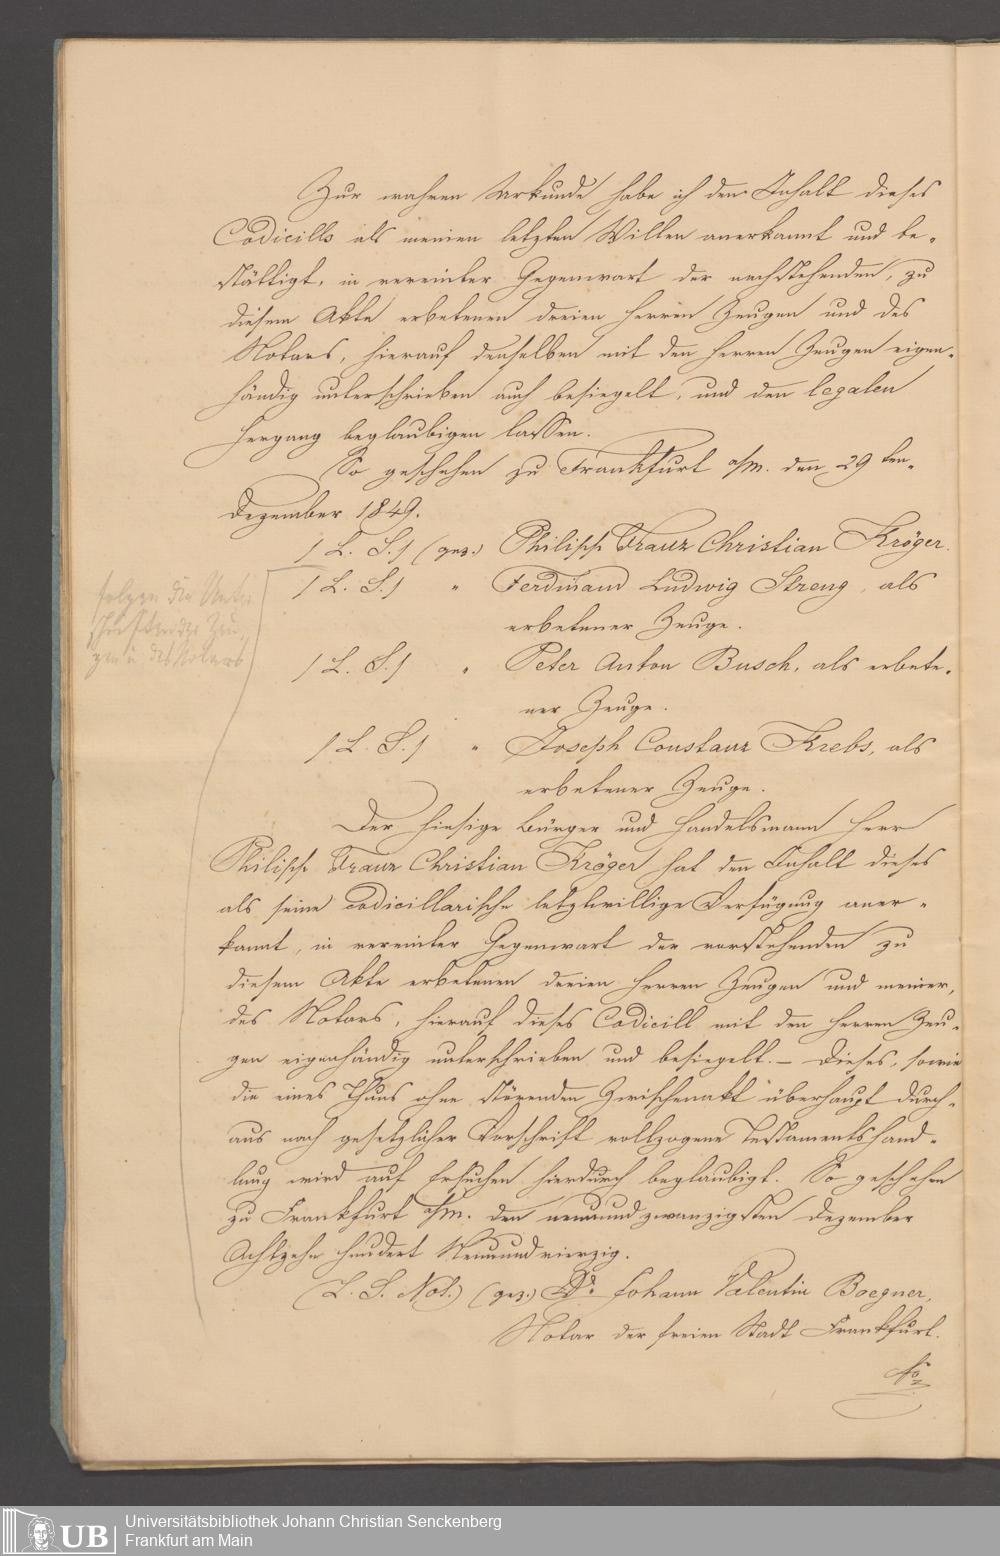 Zur wahren Urkunde habe ich den Inhalt dieses
Codicills als meinen letzten Willen anerkannt und be-
stättigt, in vereinter Gegenwart der nachstehenden, zu
diesem Akte erbetenen dreien Herren Zeugen und des
Notars, hierauf denselben mit den Herren Zeugen eigen-
händig unterschrieben auch besiegelt, und den legalen
Hergang beglaubigen lassen.
So geschehen zu Frankfurt a/m. den 29 ten
Dezember 1849.
/ L. S. / (gez.) Philipp Franz Christian Kröger.
/ L. S. / " Ferdinand Ludwig Streng, als
erbetener Zeuge.
/ L. S. / " Peter Anton Busch, als erbete-
ner Zeuge.
/ L. S. / " Joseph Constanz Krebs, als
erbetener Zeuge.
folgen die Unter
schriften der Zeu
gen u. des Notars
Der hiesige Bürger und Handelsmann Herr
Philipp Franz Christian Kröger hat den Inhalt dieses
als seine codicillarische letztwillige Verfügung aner-
kannt, in vereinter Gegenwart der vorstehenden zu
diesem Akte erbetenen dreien Herren Zeugen und meiner,
des Notars, hierauf dieses Codicill mit den Herren Zeu-
gen eigenhändig unterschrieben und besiegelt. – Dieses, sowie
die eines Thuns ohne störenden Zwischenakt überhaupt durch-
aus nach gesetzlicher Vorschrift vollzogene Testamentshand-
lung wird auf Ersuchen hierdurch beglaubigt. So geschehen
zu Frankfurt a/m. den neunundzwanzigsten Dezember
Achtzehn hundert Neunundvierzig.
(L. S. Not.) (gez.) Dr. Johann Valentin Boegner,
Notar der freien Stadt Frankfurt.
UB
Universitätsbibliothek Johann Christian Senckenberg
Frankfurt am Main